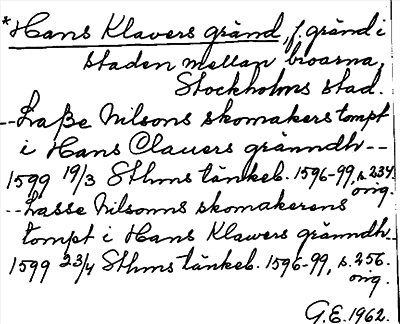 *Hans Klavers gränd, f. gränd i
staden mellan broarna,
Stockholms stad.
--Laße Nilsons skomakers tompt
i Hans Clauers gränndh--
1599 19/3 Sthms tänkeb. 1596-99, s. 234.
orig.
--Lasse Nilsonns skomakerens
tompt i Hans Klawers gränndh--
1599 23/4 Sthms tänkeb. 1596-99, s. 256.
orig.
G.E. 1962.